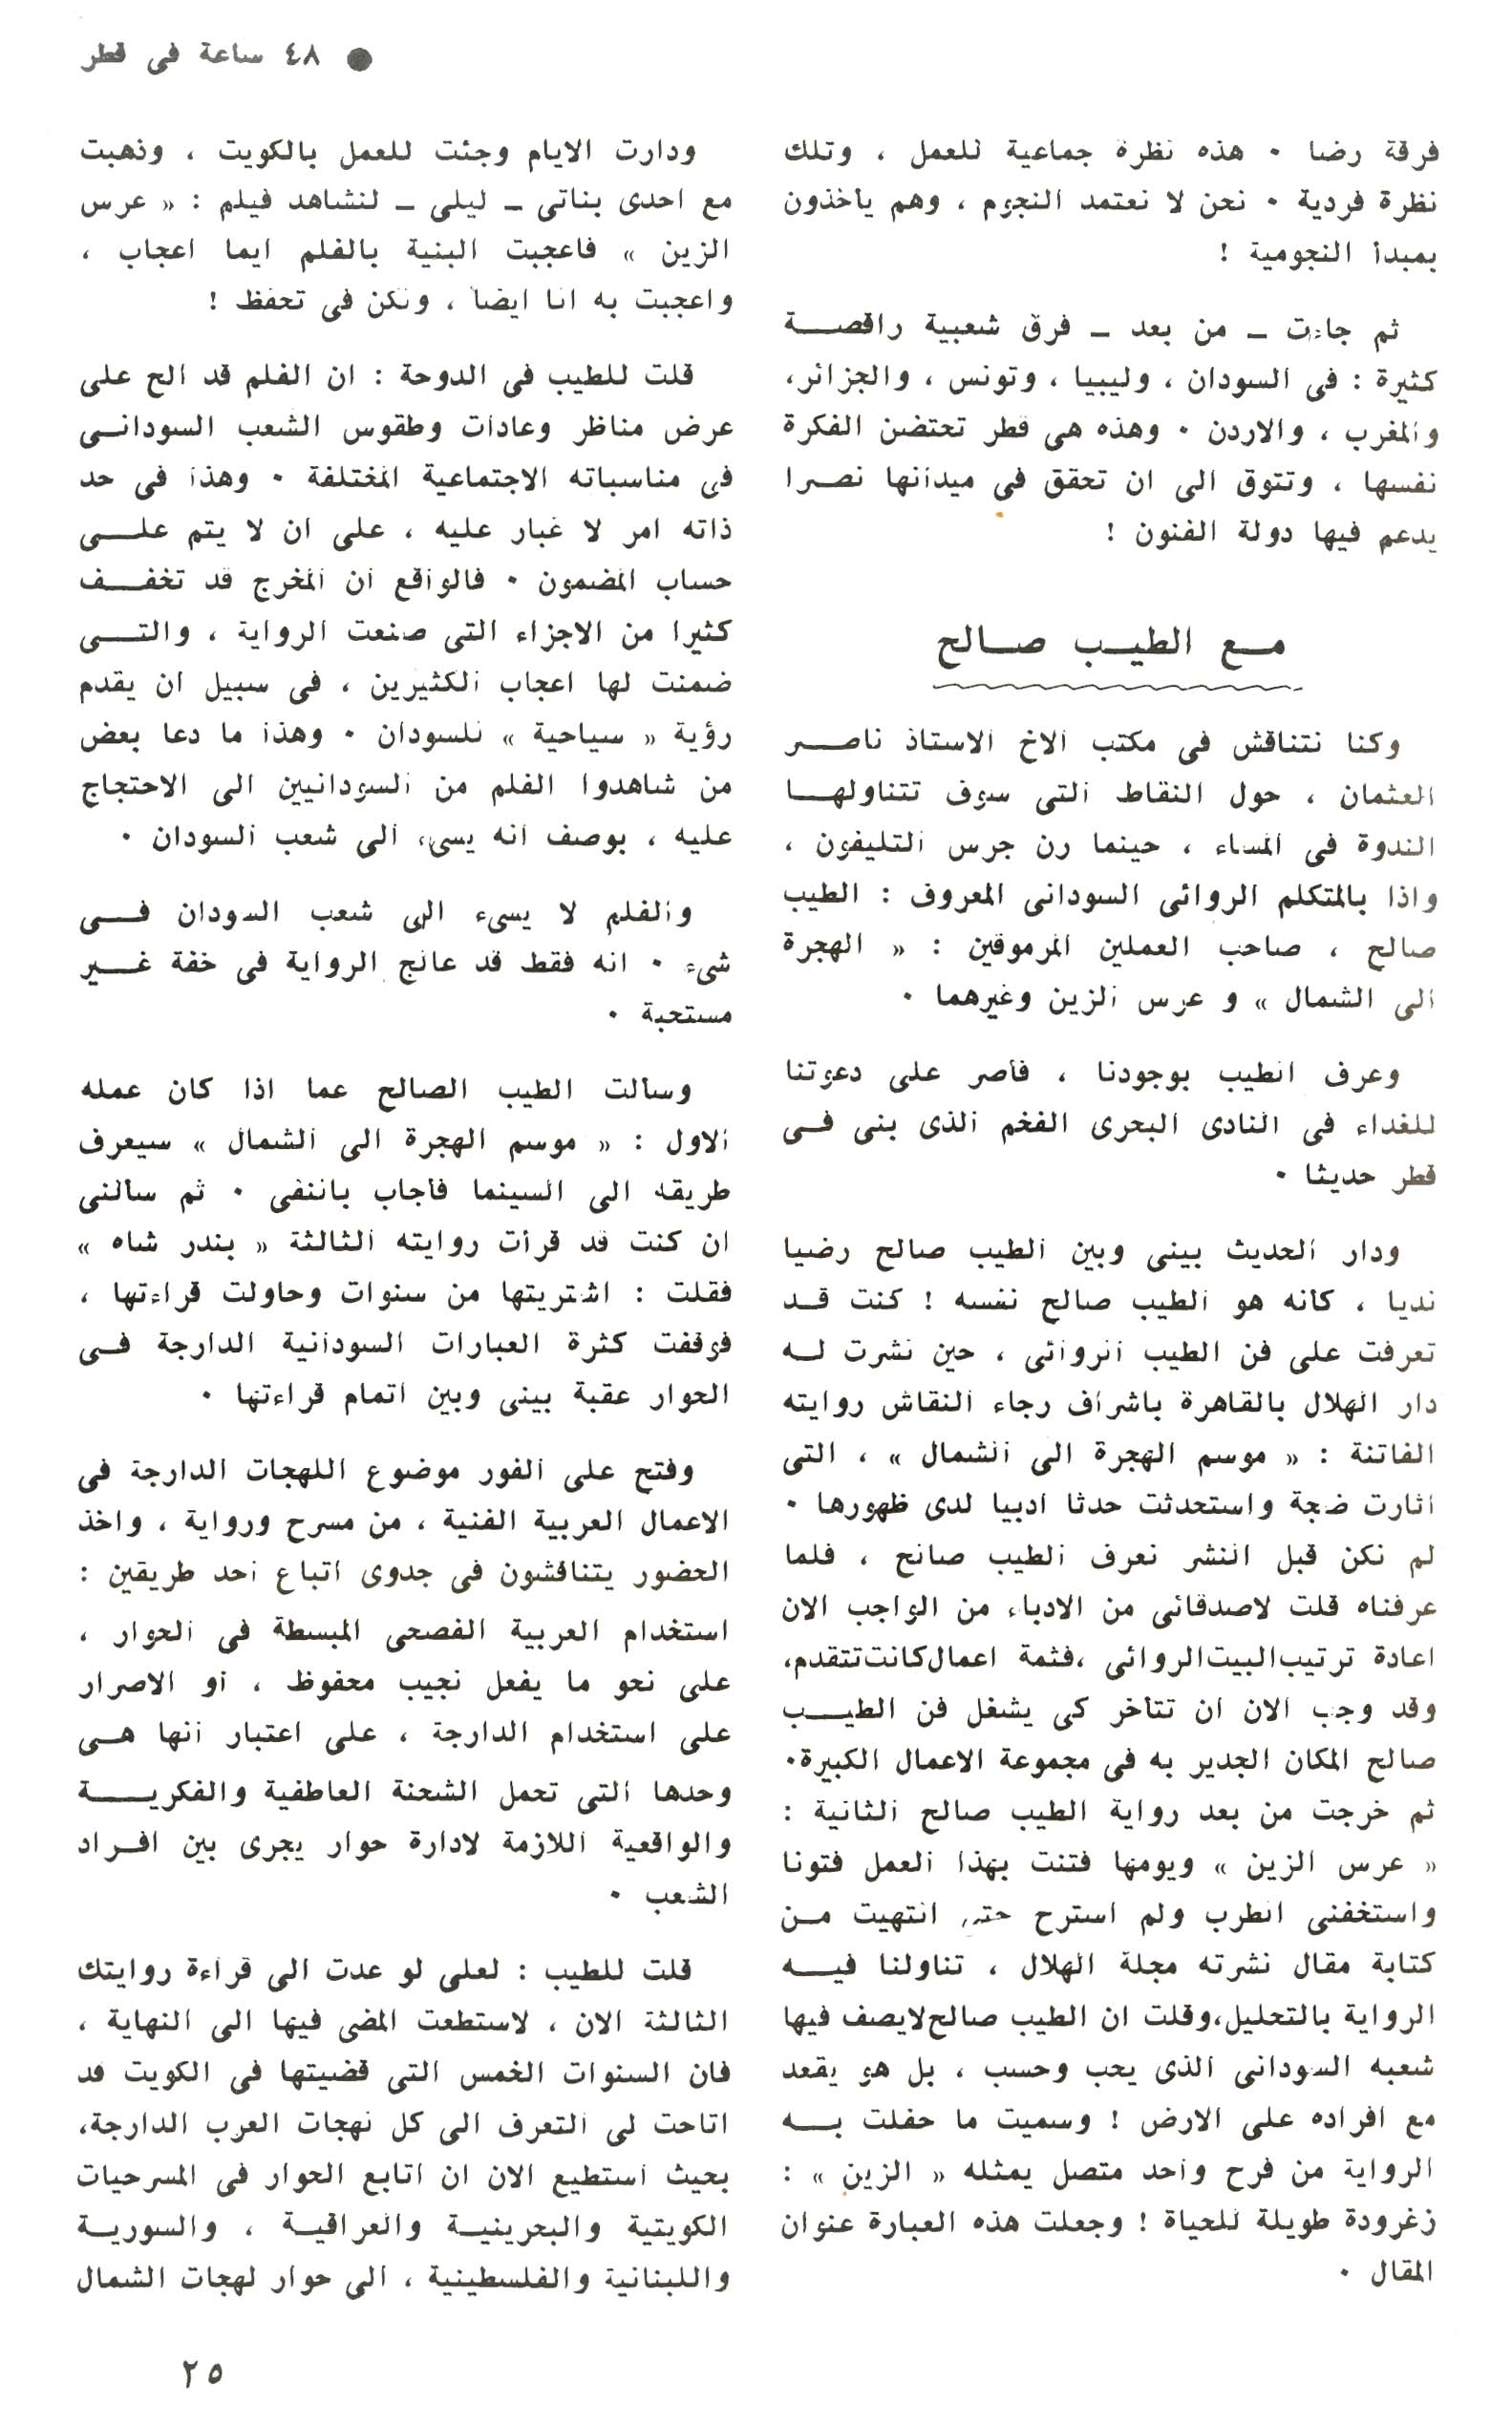 ● ٤٨ ساعة فى قطر
فرقة رضا ٠ هذه نظرة جماعية للعمل ، وتلك
نظرة فردية ٠ نحن لا نعتمد النجوم ، وهم ياخذون
بمبدأ النجومية !
ثم جاءت ــ من بعد ــ فرق شعبية راقصـــة
كثيرة : فى السودان ، وليبيا ، وتونس ، والجزائر،
والمغرب ، والاردن ٠ وهذه هى قطر تحتضن الفكرة
نفسها ، وتتوق الى ان تحقق فى ميدانها نصـرا
يدعم فيها دولة الفنون !
مـع الطيـب صـالح
وكنا نتناقش فى مكتب الاخ الاستاذ ناصـر
العثمان ، حول النقاط التى سوف تتناولهـا
الندوة فى المساء ، حينما رن جرس التليفون ،
واذا بالمتكلم الروائى السودانى المعروف : الطيب
صالح ، صاحب العملين المرموقين : « الهجرة
الى الشمال » و عرس الزين وغيرهما ٠
وعرف الطيب بوجودنا ، فأصر على دعوتنا
للغداء فى النادى البحرى الفخم الذى بنى فـى
قطر حديثا ٠
ودار الحديث بينى وبين الطيب صالح رضيا
نديا ، كانه هو الطيب صالح نفسه ! كنت قـد
تعرفت على فن الطيب الروائى ، حين نشرت لـه
دار الهلال بالقاهرة باشراف رجاء النقاش روايته
الفاتنة : « موسم الهجرة الى الشمال » ، التى
اثارت ضجة واستحدثت حدثا ادبيا لدى ظهورها ٠
لم نكن قبل النشر نعرف الطيب صالح ، فلما
عرفناه قلت لاصدقائى من الادباء من الواجب الان
اعادة ترتيب البيت الروائى ،فثمة اعمال كانت تتقدم،
وقد وجب الان ان تتاخر كى يشغل فن الطيـب
صالح المكان الجدير به فى مجموعة الاعمال الكبيرة٠
ثم خرجت من بعد رواية الطيب صالح الثانية :
« عرس الزين » ويومها فتنت بهذا العمل فتونا
واستخفنى الطرب ولم استرح حتى انتهيت مـن
كتابة مقال نشرته مجلة الهلال ، تناولنا فيـه
الرواية بالتحليل،وقلت ان الطيب صالح لايصف فيها
شعبه السودانى الذى يحب وحسب ، بل هو يقعد
مع افراده على الارض ! وسميت ما حفلت بـه
الرواية من فرح واحد متصل يمثله « الزين » :
زغرودة طويلة للحياة ! وجعلت هذه العبارة عنوان
المقال ٠
ودارت الايام وجئت للعمل بالكويت ، وذهبت
مع احدى بناتى ــ ليلى ــ لنشاهد فيلم : « عرس
الزين » فاعجبت البنية بالفلم ايما اعجاب ،
واعجبت به انا ايضا ، ولكن فى تحفظ !
قلت للطيب فى الدوحة : ان الفلم قد الح على
عرض مناظر وعادات وطقوس الشعب السودانـى
فى مناسباته الاجتماعية المختلفة ٠ وهذا فى حد
ذاته امر لا غبار عليه ، على ان لا يتم علـى
حساب المضمون ٠ فالواقع ان المخرج قد تخفـف
كثيرا من الاجزاء التى صنعت الرواية ، والتـى
ضمنت لها اعجاب الكثيرين ، فى سبيل ان يقدم
رؤية « سياحية » للسودان ٠ وهذا ما دعا بعض
من شاهدوا الفلم من السودانيين الى الاحتجاج
عليه ، بوصف انه يسىء الى شعب السودان ٠
والفلم لا يسىء الى شعب السودان فـى
شىء ٠ انه فقط قد عالج الرواية فى خفة غـير
مستحبة ٠
وسألت الطيب الصالح عما اذا كان عمله
الاول : « موسم الهجرة الى الشمال » سيعرف
طريقه الى السينما فأجاب بالنفى ٠ ثم سالنى
ان كنت قد قرأت روايته الثالثة « بندر شاه »
فقلت : اشتريتها من سنوات وحاولت قراءتها ،
فوقفت كثرة العبارات السودانية الدارجة فـى
الحوار عقبة بينى وبين اتمام قراءتها ٠
وفتح على الفور موضوع اللهجات الدارجة فى
الاعمال العربية الفنية ، من مسرح ورواية ، واخذ
الحضور يتناقشون فى جدوى اتباع احد طريقين :
استخدام العربية الفصحى المبسطة فى الحوار ،
على نحو ما يفعل نجيب محفوظ ، أو الاصرار
على استخدام الدارجة ، على اعتبار انها هـى
وحدها التى تحمل الشحنة العاطفية والفكريـة
والواقعية اللازمة لادارة حوار يجرى بين افـراد
الشعب ٠
قلت للطيب : لعلى لو عدت الى قراءة روايتك
الثالثة الان ، لاستطعت المضى فيها الى النهاية ،
فان السنوات الخمس التى قضيتها فى الكويت قد
اتاحت لى التعرف الى كل لهجات العرب الدارجة،
بحيث استطيع الان ان اتابع الحوار فى المسرحيات
الكويتية والبحرينيـة والعراقيـة ، والسوريـة
واللبنانية والفلسطينية ، الى حوار لهجات الشمال
٢٥